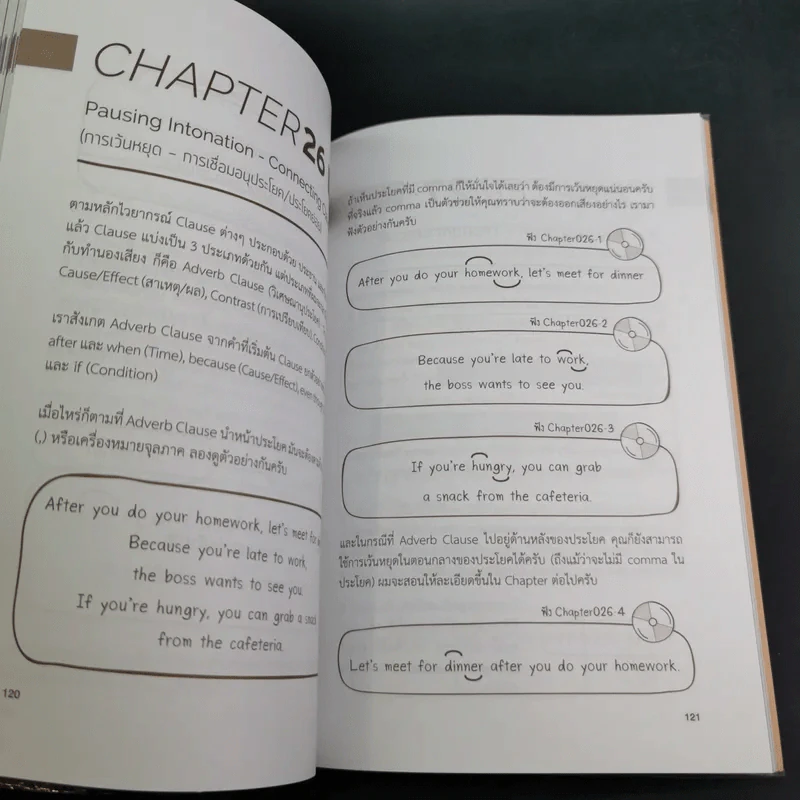 CHAPTER 26
Pausing Intonation - Connecting
(การเว้นหยุด – การเชื่อมอนุประโยค/ประโยคย่อย)
ตามหลักไวยากรณ์ Clause ต่างๆ ประกอบด้วย ประธาน
แล้ว Clause แบ่งเป็น 3 ประเภทด้วยกัน
กับทำนองเสียง ก็คือ Adverb Clause (วิเศษณานุประโยค)
Cause/Effect (สาเหตุ/ผล), Contrast (การเปรียบเทียบ),
เราสังเกต Adverb Clause จากคำที่เริ่มต้น Clause
after และ when (Time), because (Cause/Effect),
และ if (Condition)
เมื่อไหร่ก็ตามที่ Adverb Clause นำหน้าประโยค
(,) หรือเครื่องหมายจุลภาค ลองดูตัวอย่างกันครับ
After you do your homework, let's meet for
Because you're late to work,
the boss wants to see you.
If you're hungry, you can grab a snack
from the cafeteria.
120
ถ้าเห็นประโยคที่มี comma ก็ให้มั่นใจได้เลยว่า ต้องมีการเว้นหยุดแน่นอนครับ
ที่จริงแล้ว comma เป็นตัวช่วยให้คุณทราบว่าจะต้องออกเสียงอย่างไร เรามา
ฟังตัวอย่างกันครับ
ฟัง Chapter026-1
After you do your homework, let's meet for dinner
ฟัง Chapter026-2
Because you're late to work,
the boss wants to see you.
ฟัง Chapter026-3
If you're hungry, you can grab
a snack from the cafeteria.
และในกรณีที่ Adverb Clause ไปอยู่ด้านหลังของประโยค คุณก็ยังสามารถ
ใช้การเว้นหยุดในตอนกลางของประโยคได้ครับ (ถึงแม้ว่าจะไม่มี comma ใน
ประโยค) ผมจะสอนให้ละเอียดขึ้นใน Chapter ต่อไปครับ
ฟัง Chapter026-4
Let's meet for dinner after you do your homework.
121